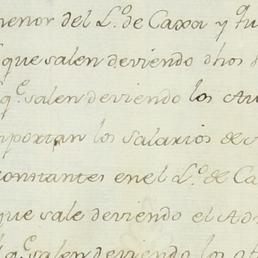 menor del L.º de Caxa y
que salen deviendo dhos
q.e salen deviendo los
importan los salarios de
constantes en el L.º de Ca
que sale deviendo el Ad
q.e salen deviendo los